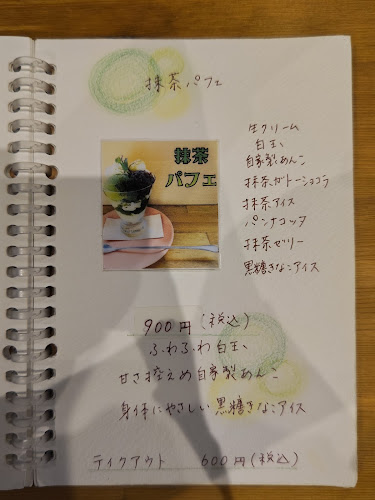 抹茶パフェ
抹茶
パフェ
生クリーム
白玉
自家製あんこ
抹茶ガトーショコラ
抹茶アイス
パンナコッタ
抹茶ゼリー
黒糖きなこアイス
900円(税込)
ふわふわ白玉
甘さ控えめ自家製あんこ
身体にやさしい黒糖きなこアイス
テイクアウト 600円(税込)